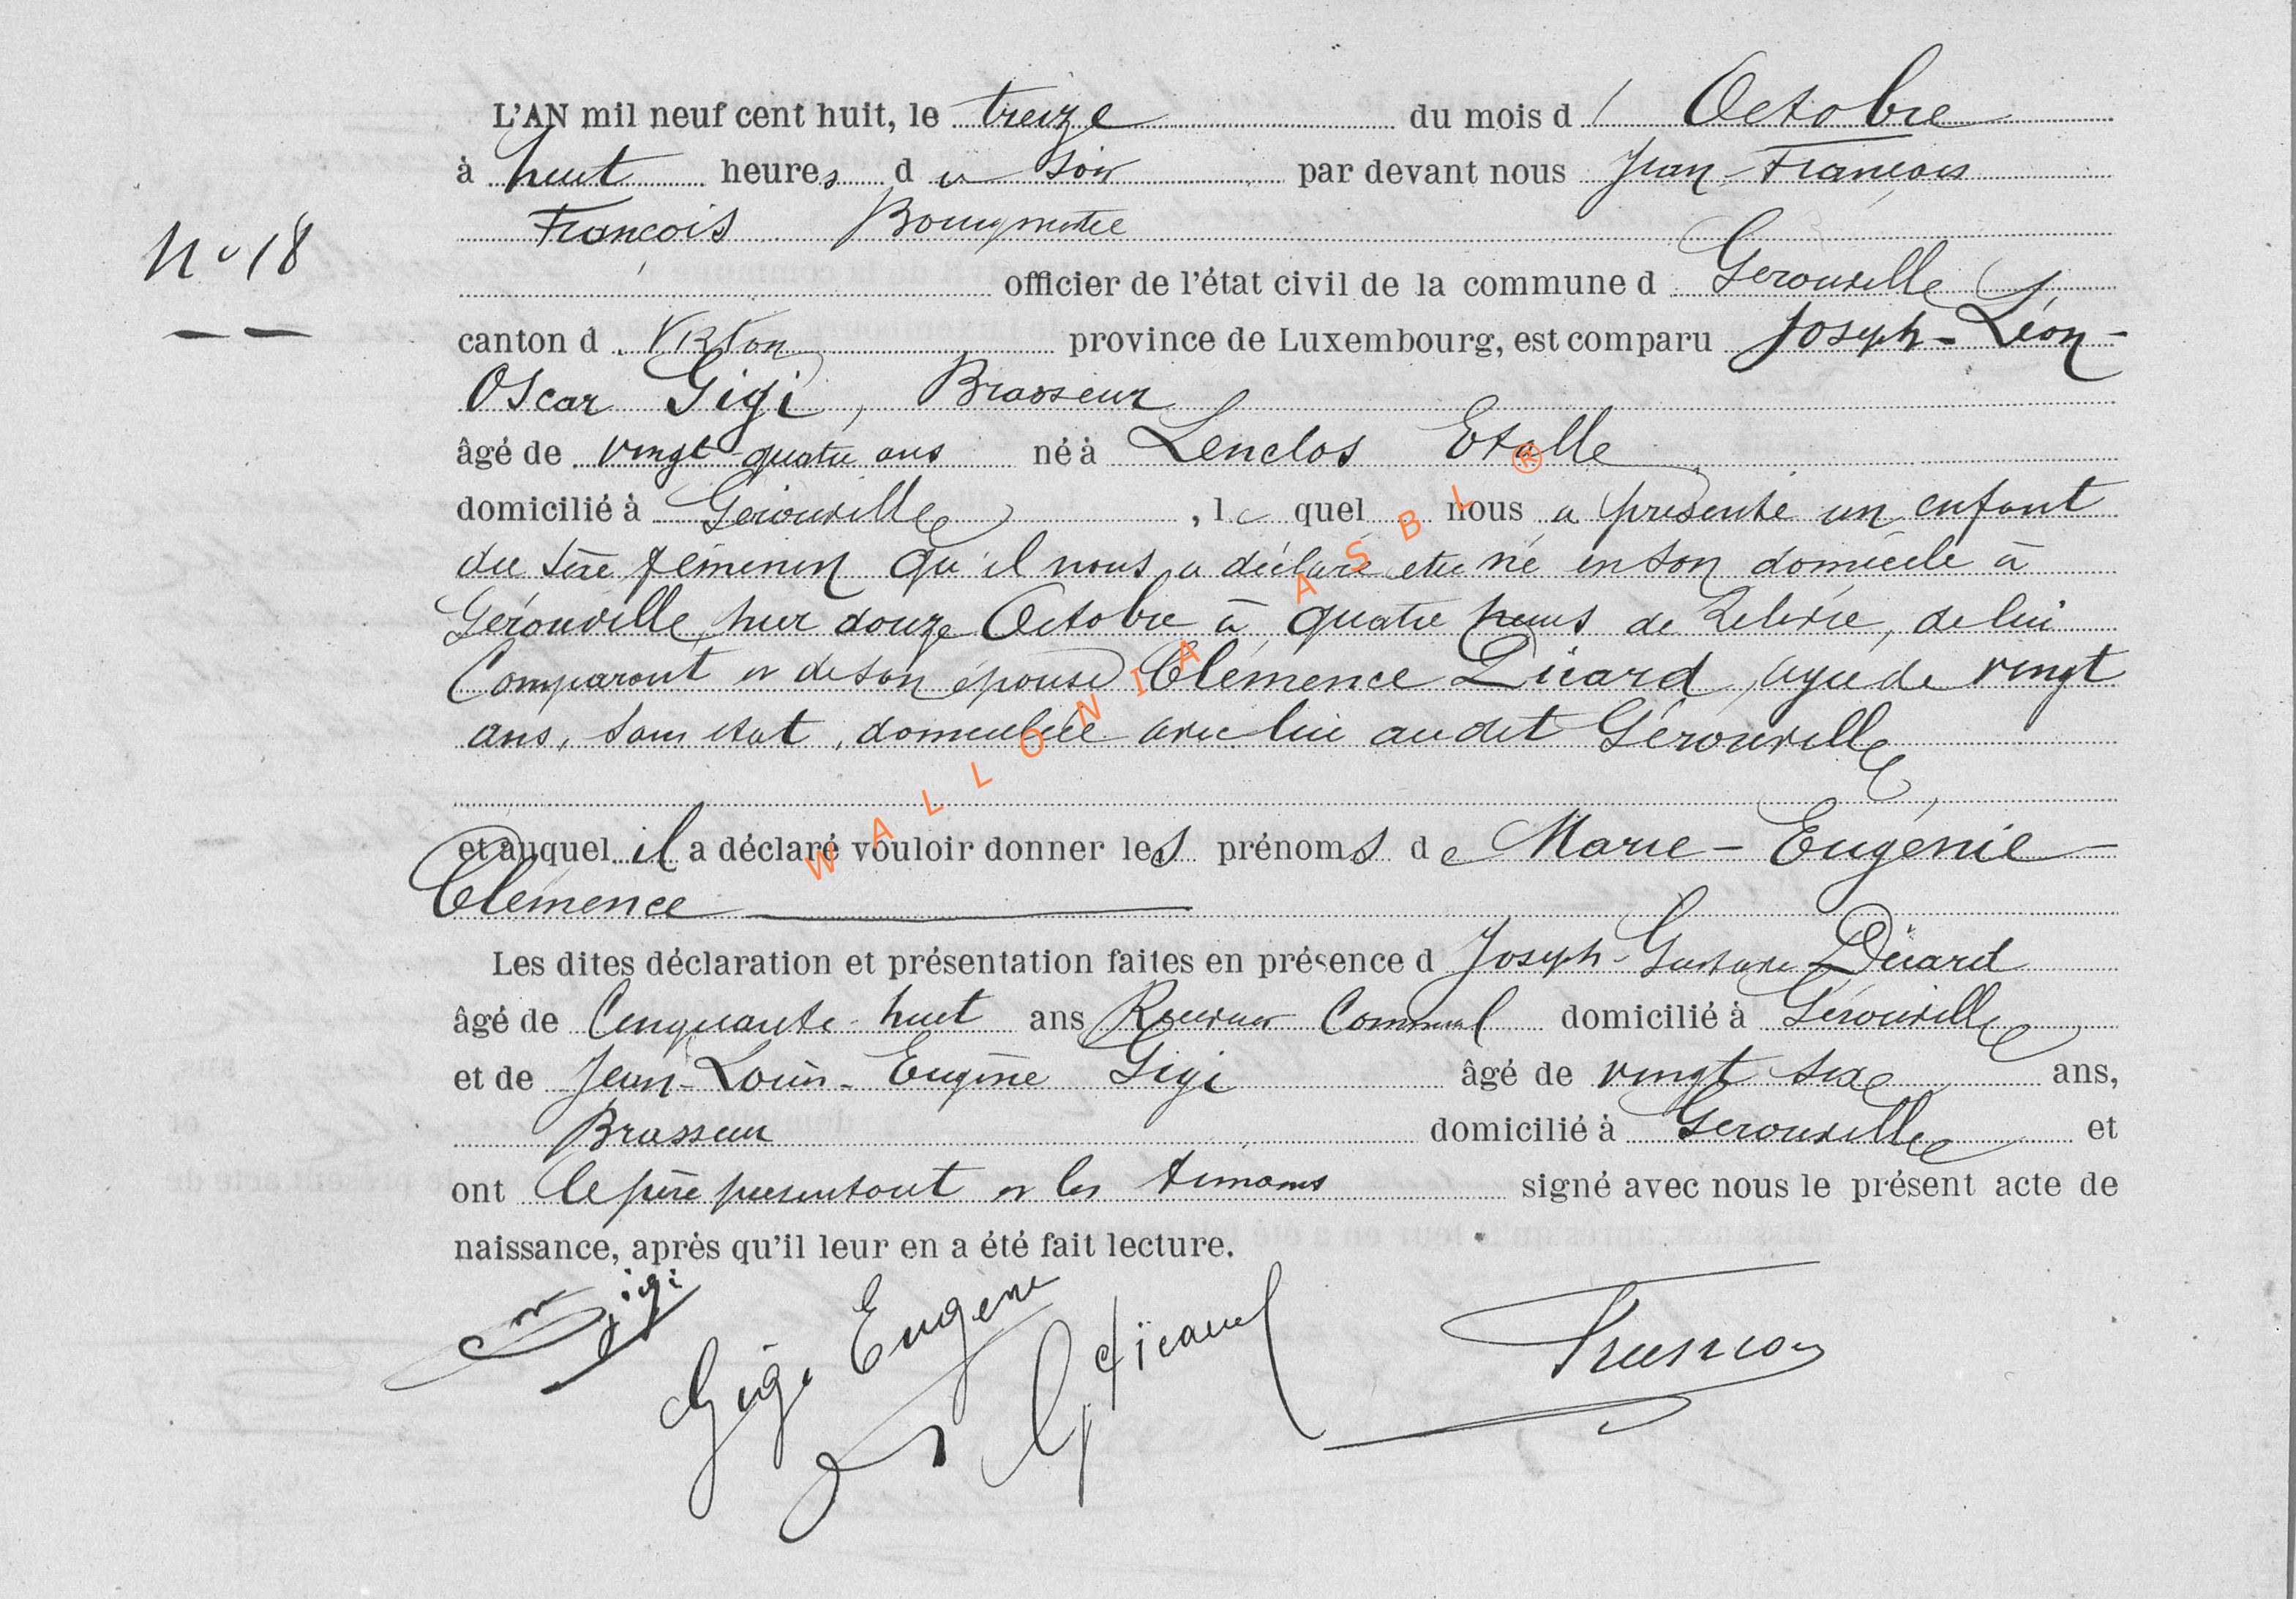 L'AN mil neuf cent huit, le treize du mois d' Octobre
à huit heures du soir par devant nous Jean-François
François Bourgmestre
N° 18
officier de l'état civil de la commune d Gérouville
canton d Virton province de Luxembourg, est comparu Joseph-Léon-
Oscar Gigi, Brasseur
âgé de vingt-quatre ans né à Lenclos Etalle
domicilié à Gérouville, lequel nous a présenté un enfant
du sexe féminin qu'il nous a déclaré être né en son domicile à
Gérouville, hier douze Octobre à quatre heures de Relevée, de lui
Comparant et de son épouse Clémence Dicard, agée de vingt
ans, sans état, domiciliée avec lui audit Gérouville,
et auquel il a déclaré vouloir donner les prénoms de Marie-Eugénie-
Clémence
Les dites déclaration et présentation faites en présence d Joseph-Gustave Dicard
âgé de Cinquante-huit ans Receveur Communal domicilié à Gérouville
et de Jean-Louis-Eugène Gigi âgé de vingt six ans,
Brasseur domicilié à Gérouville et
ont le père présentant et les témoins signé avec nous le présent acte de
naissance, après qu'il leur en a été fait lecture.
Gigi
Gigi Eugène
WALLONIA ASBL ®